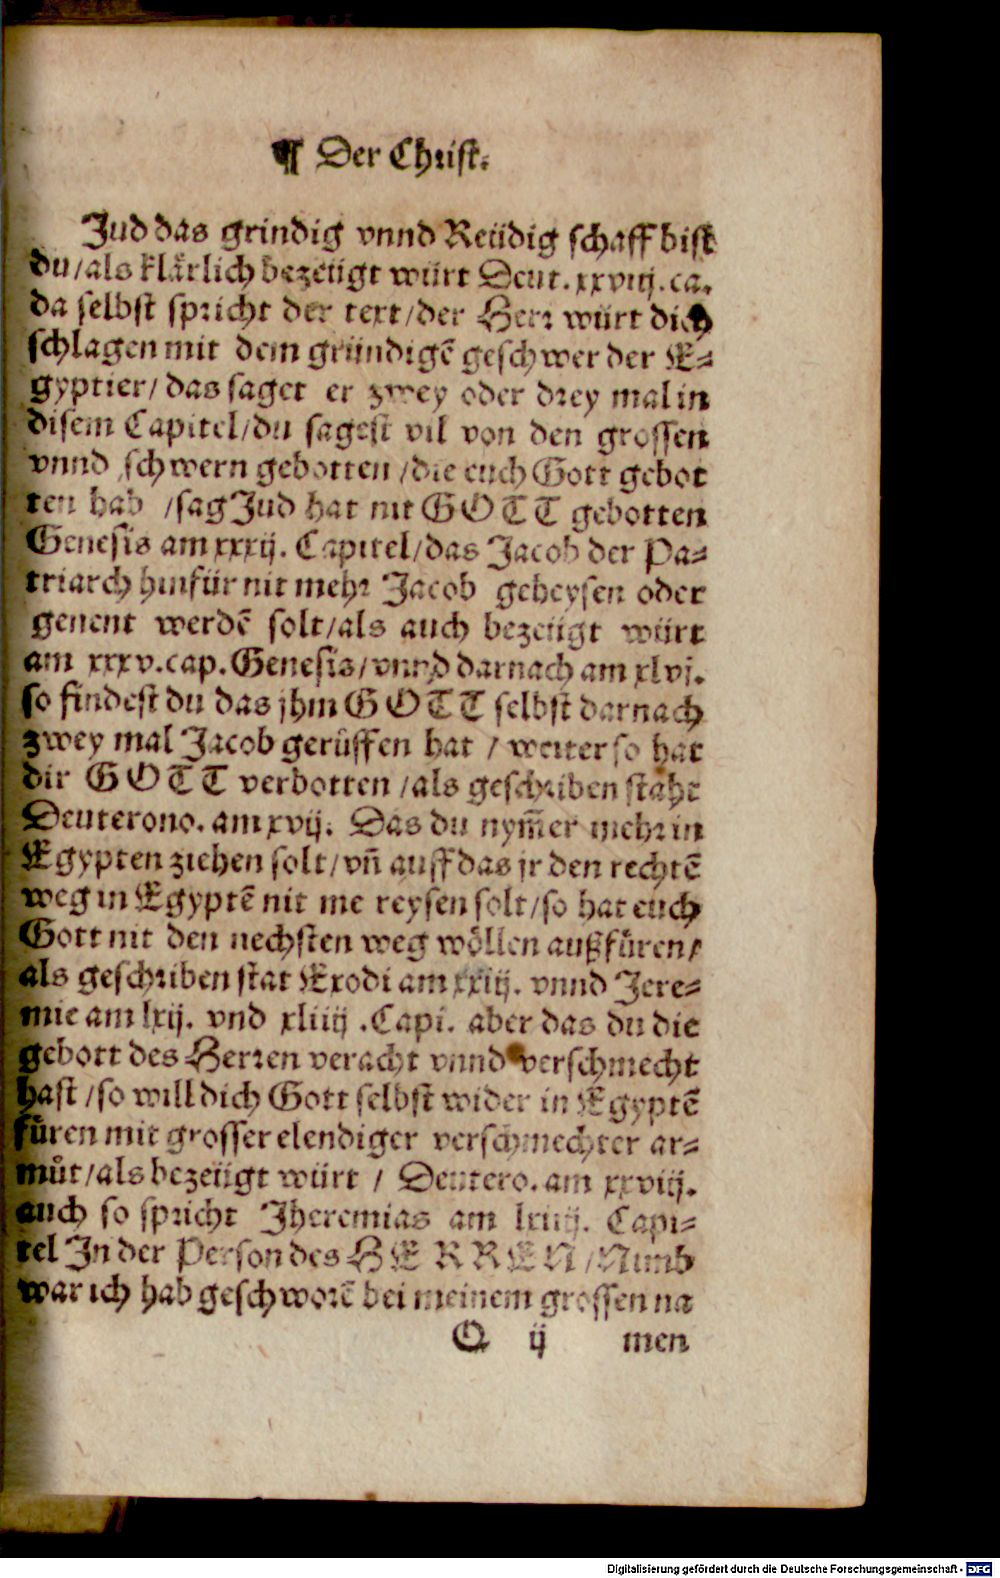 ¶ Der Christ.
Jud das grindig vnnd Reüdig schaff bist
du/als klärlich bezeügt würt Deut.xxviij.ca.
da selbst spricht der text/der Herr würt dich
schlagen mit dem gründigē geschwer der E-
gyptier/das saget er zwey oder drey mal in
disem Capitel/du sagest vil von den grossen
vnnd schwern gebotten/die euch Gott gebot
ten hab /sag Jud hat nit GOTT gebotten
Genesis am xxxij. Capitel/das Jacob der Pa-
triarch hinfür nit mehr Jacob geheysen oder
genent werdē solt/als auch bezeügt würt
am xxxv.cap.Genesis/vnnd darnach am xlvj.
so findest du das jhm GOTT selbst darnach
zwey mal Jacob gerůffen hat / weiter so hat
dir GOTT verbotten/als geschriben staht
Deuterono.am xvij. Das du nym̄er mehr in
Egypten ziehen solt/vn̄ auff das jr den rechtē
weg in Egyptē nit me reysen solt/so hat euch
Gott nit den nechsten weg wöllen außfůren/
als geschriben stat Exodi am xxiij. vnnd Jere-
mie am lxij. vnd xliiij .Capi. aber das du die
gebott des Herren veracht vnnd verschmecht
hast/so will dich Gott selbst wider in Egyptē
fůren mit grosser elendiger verschmechter ar-
můt/als bezeügt würt / Deutero.am xxviij.
auch so spricht Jheremias am lxiiij. Capi-
tel In der Person des HERREN/Nimb
war ich hab geschworē bei meinem grossen na
Q ij men
Digitalisierung gefördert durch die Deutsche Forschungsgemeinschaft - DFG